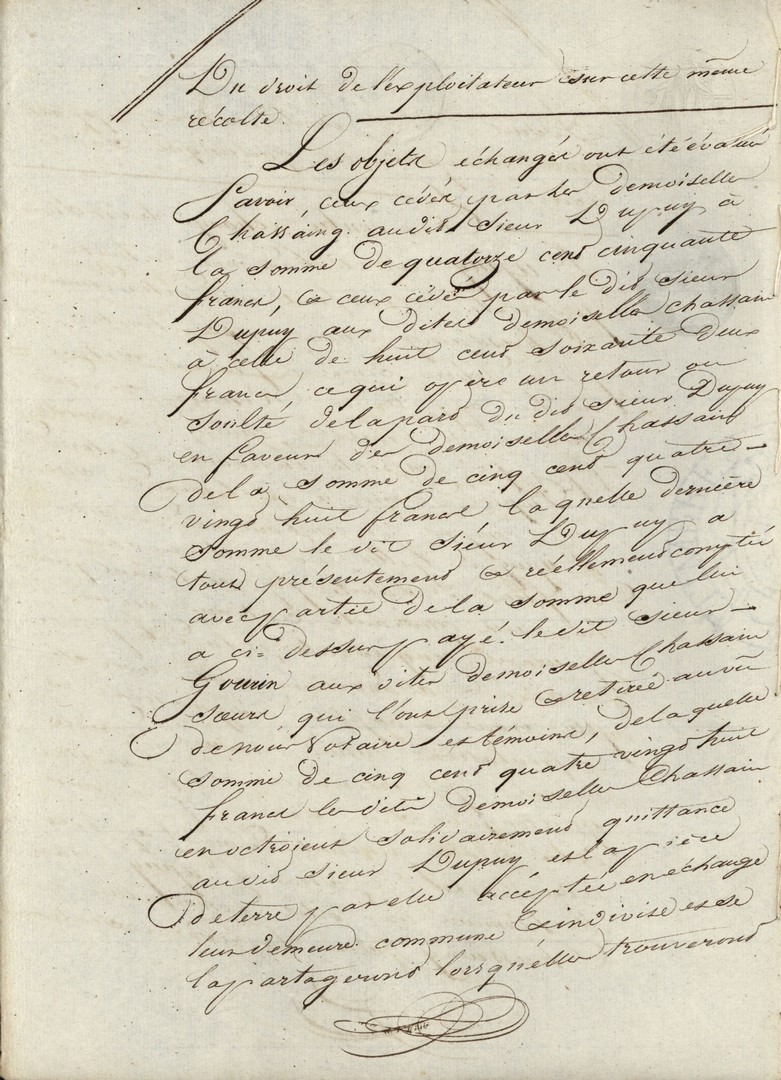 Du droit de l'exploitateur sur cette même
récolte.
Les objets échangés ont été évalués
Savoir, ceux cédés par les demoiselles
Chassaing audit sieur Dupuy à
la somme de quatorze cent cinquante
francs, & ceux cédés par le dit sieur
Dupuy aux dites demoiselles Chassain
à celle de huit cent soixante deux
francs, ce qui opère un retour ou
soulté de la part du dit sieur Dupuy
en faveur des demoiselles Chassain
de la somme de cinq cent quatre
vingt huit francs laquelle dernière
somme le dit sieur Dupuy a
tout présentement & réellement compté
avec partie de la somme que lui
a ci-dessus payé. le dit sieur
Gourin aux dites demoiselles Chassain
sœurs qui l'ont prise & retirée au vu
de nous Notaire et témoins, de laquelle
somme de cinq cent quatre vingt huit
francs les dites demoiselles Chassain
en octroient solidairement quittance
au dit sieur Dupuy et la pièce
de terre par elles acceptée en échange
leur demeure commune & indivise et se
la partageront lorsqu'elles trouveront